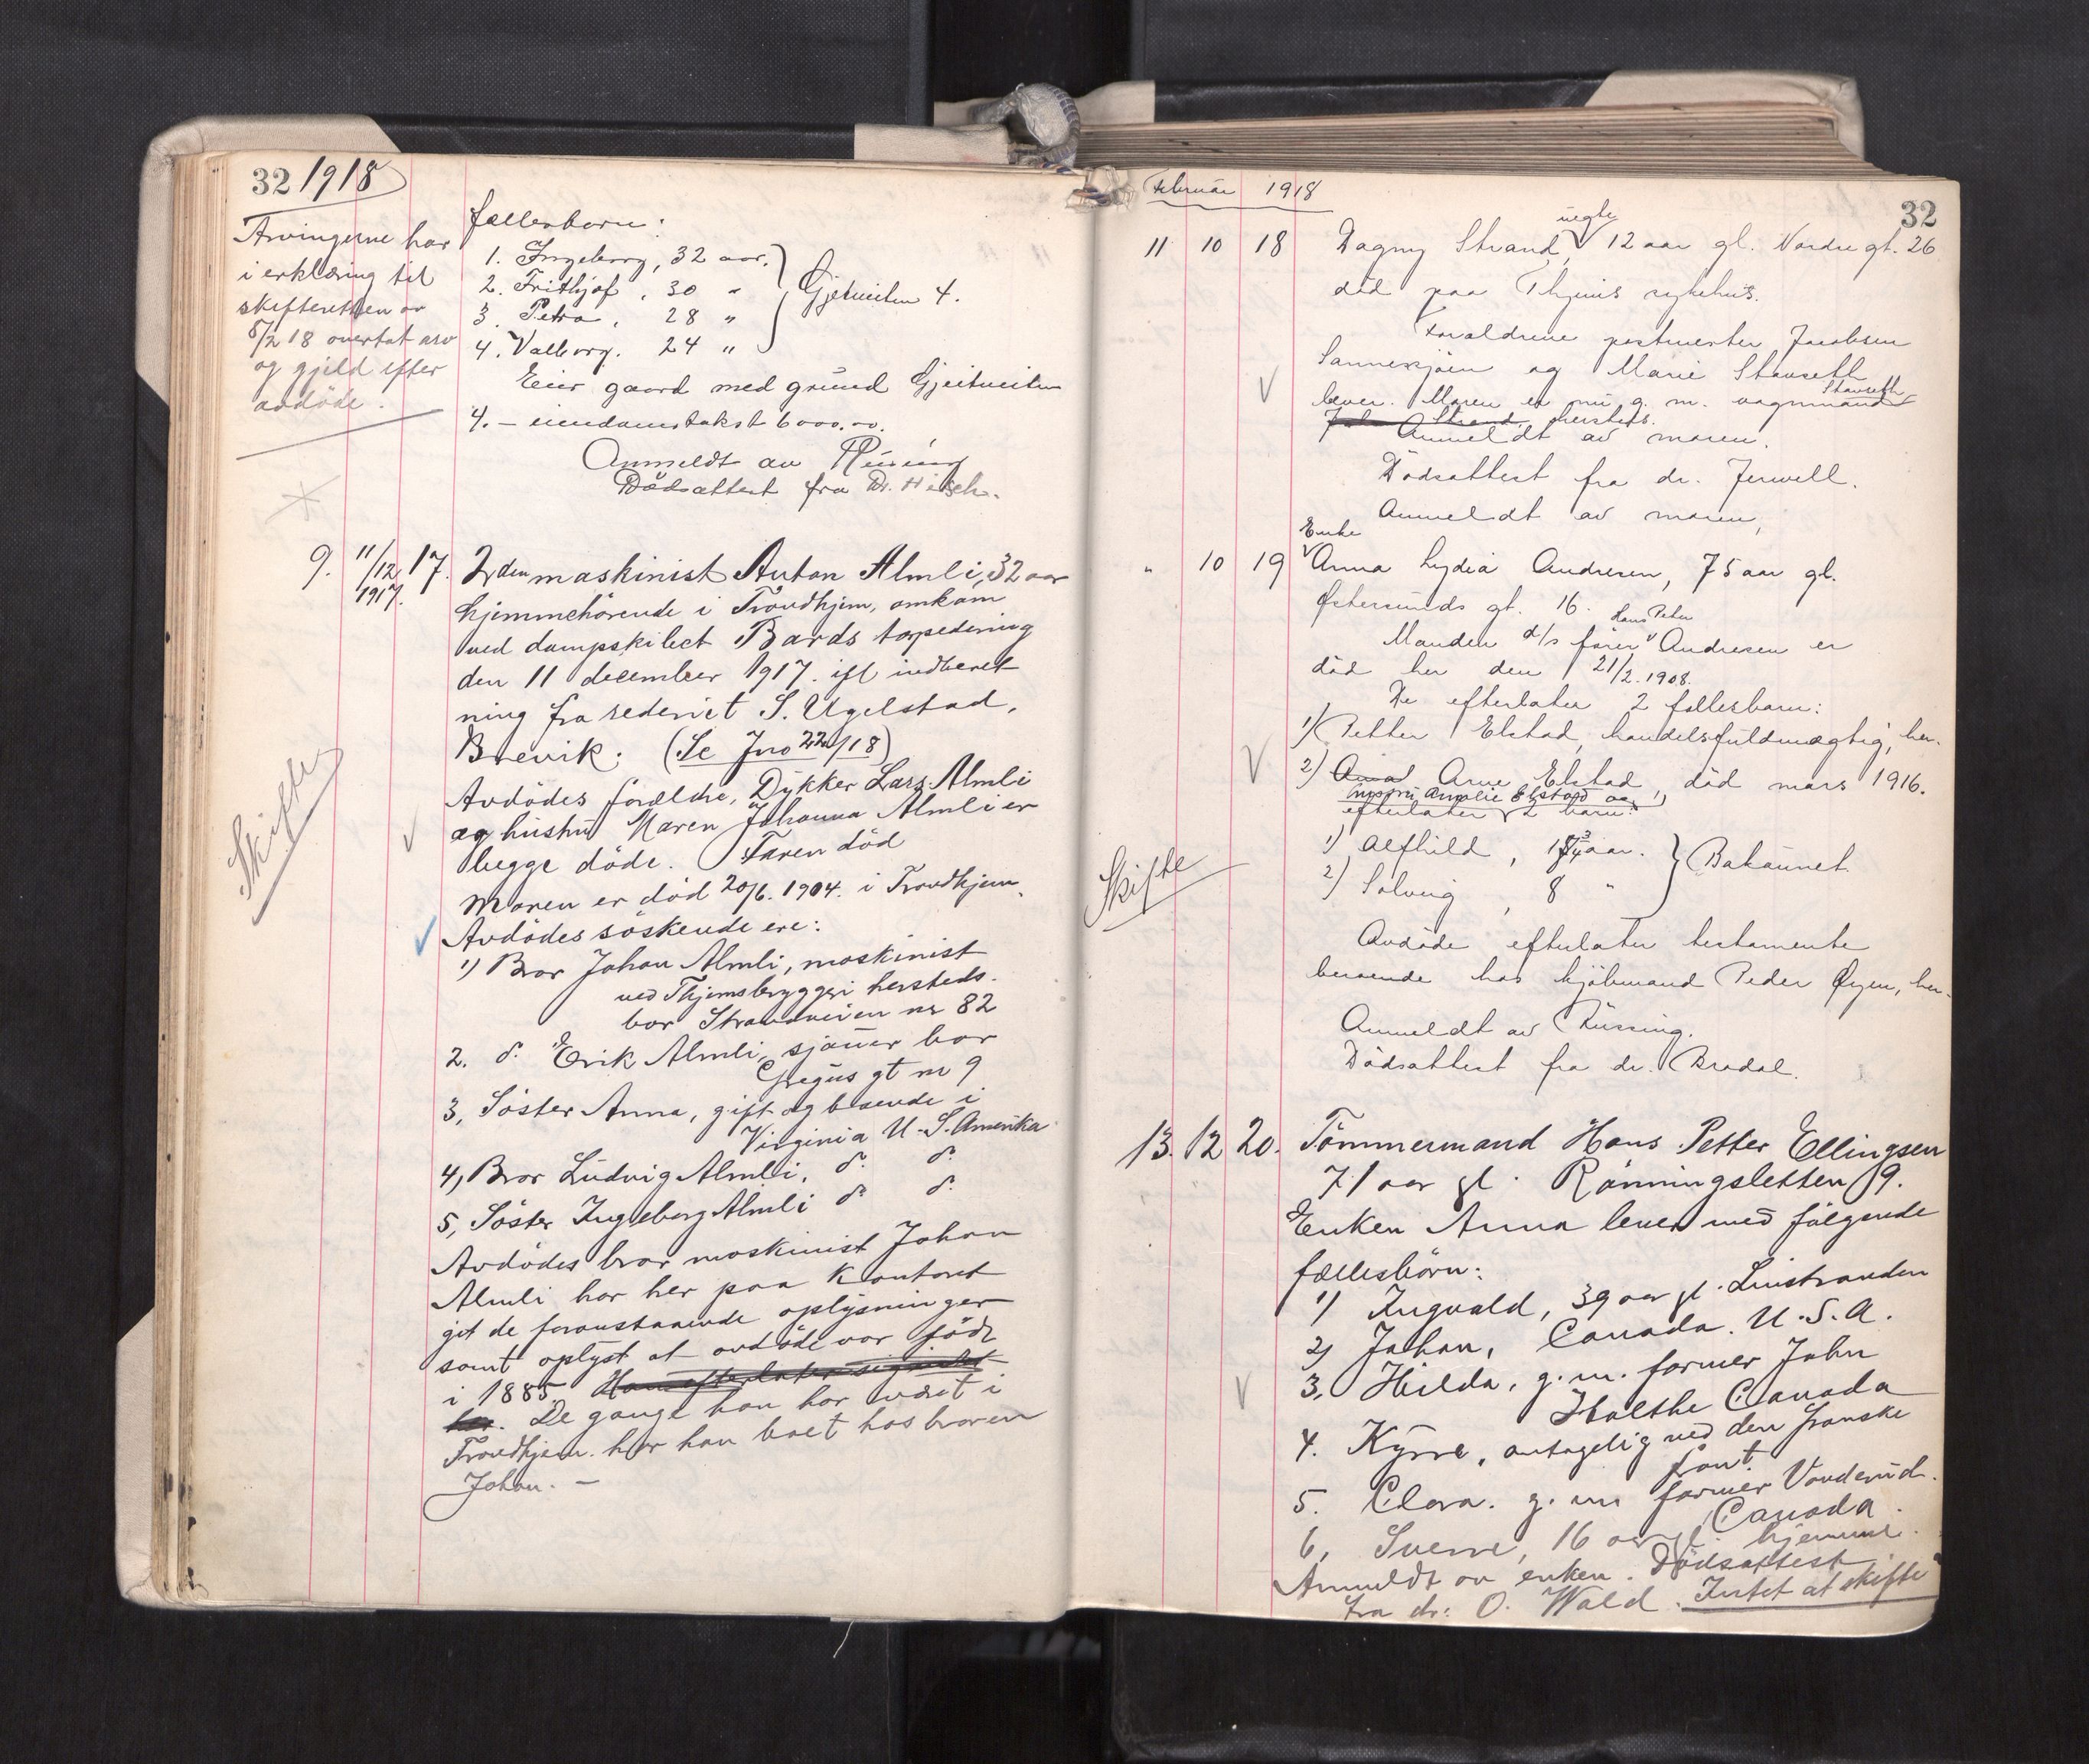 32 1918
Arvingerne har
i erklæring til
skifteretten av
5/2 18 overtat arv
og gjeld efter
avdöde.
fællesbarn:
1. Ingeborg, 32 aar.
2. Frithjof, 30 "
3. Petra, 28 "
4. Valborg. 24 "
Gjetveiten 4.
Eier gaard med grund Gjeitveiten
4. – eiendomstakst 6000.00.
Anmeldt av
Dödsattest fra Dr.
9. 11/12 1917. 17. 2den maskinist Anton Almli, 32 aar
hjemmehörende i Trondhjem, omkom
ved dampskibet Bards torpedering
den 11 december 1917. ifl indberet
ning fra rederiet S. Ugelstad,
Brevik. (Se Jno 22/18)
Avdödes forældre, Dykker Lars Almli
og hustru Maren Johanna Almli er
begge döde. Faren död
Moren er död 20/6. 1904. i Trondhjem.
Skifte
Avdödes söskende ere:
1) Bror Johan Almli, maskinist
ved Thjemsbryggeri hersteds.
bor Strandveien nr 82
2. d. Erik Almli, sjauer bor
Gregus gt nr 9
3, Söster Anna, gift og boende i
Virginia U. S. Amerika
4, Bror Ludvig Almli, d. d.
5, Söster Ingeborg Almli d. d.
Avdödes bror maskinist Johan
Almli har her paa Kontoret
git de foranstaaende oplysninger
samt oplyst at avdöde var födt
i 1885. Han efterlater sig intet
her. De gange han har været i
Trondhjem. har han boet hos broren
Johan. –
Februar 1918
32
11 10 18 Dagny Strand, uegte 12 aar gl. Nordre gt. 26
död paa Thjems sykehus.
Forældrene postmester Jacobsen
Sannesjöen og Marie Stavseth
lever. Moren er nu g. m. vognmand Stavseth
Strand, hersteds.
Anmeldt av moren.
Dödsattest fra dr. Jerwell.
Anmeldt av moren,
Enke
" 10 19 Anna Lydia Andresen, 75 aar gl.
Østersunds gt. 16.
Manden d/s förer Hans Peter Andresen er
död her den 21/2. 1908.
De efterlater 2 fællesbarn:
1) Petter Elstad, handelsfuldmægtig, her.
2) Arne Elstad, död mars 1916.
Amalie Elstad og
efterlater 2 barn:
1) Alfhild, aar.
2) Solveig, 8 "
Bakaunet
Skifte
Avdöde efterlater testamente
beroende hos kjöbmand Peder Øyen, her.
Anmeldt av Küssing.
Dödsattest fra dr. Bradal.
13. 12 20. Tömmermand Hans Petter Ellingsen
71 aar gl. Rönningsletten 9.
Enken Anna lever med fölgende
fællesbörn:
1) Ingvald, 39 aar gl. Leinstranden
2) Johan, Canada. U. S. A.
3, Hilda, g. m. farmer John
Holthe Canada
4. Kyrre, antagelig ved den franske
front.
5. Clara. g. m farmer Vanderud.
Canada.
6, Sverre, 16 aar gl. hjemme.
Anmeldt av enken. Dödsattest
fra dr. O. Wald. Intet at skifte